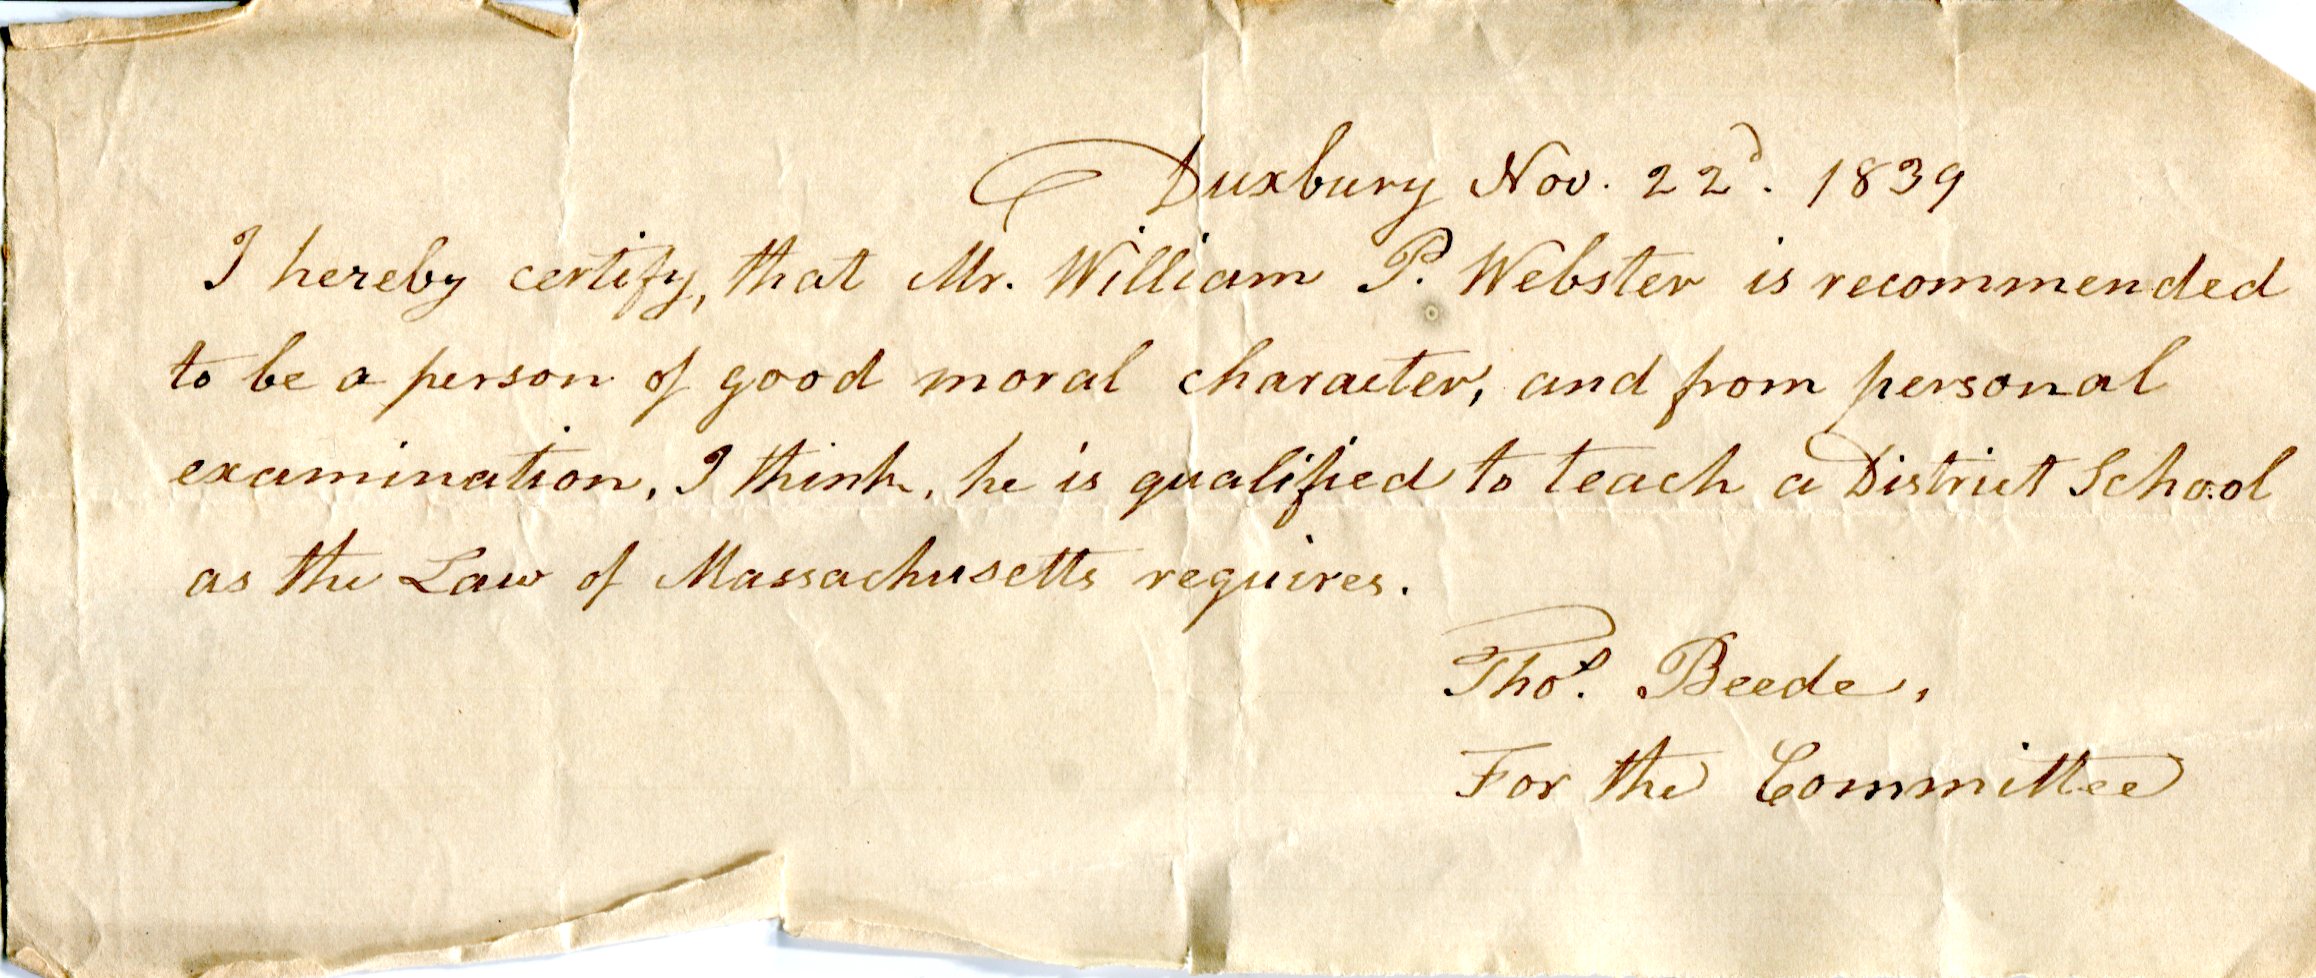 Duxbury Nov. 22d. 1839
I hereby certify, that Mr. William P. Webster is recommended
to be a person of good moral character, and from personal
examination, I think, he is qualified to teach a District School
as the Law of Massachusetts requires.
Thos. Beede,
For the Committee